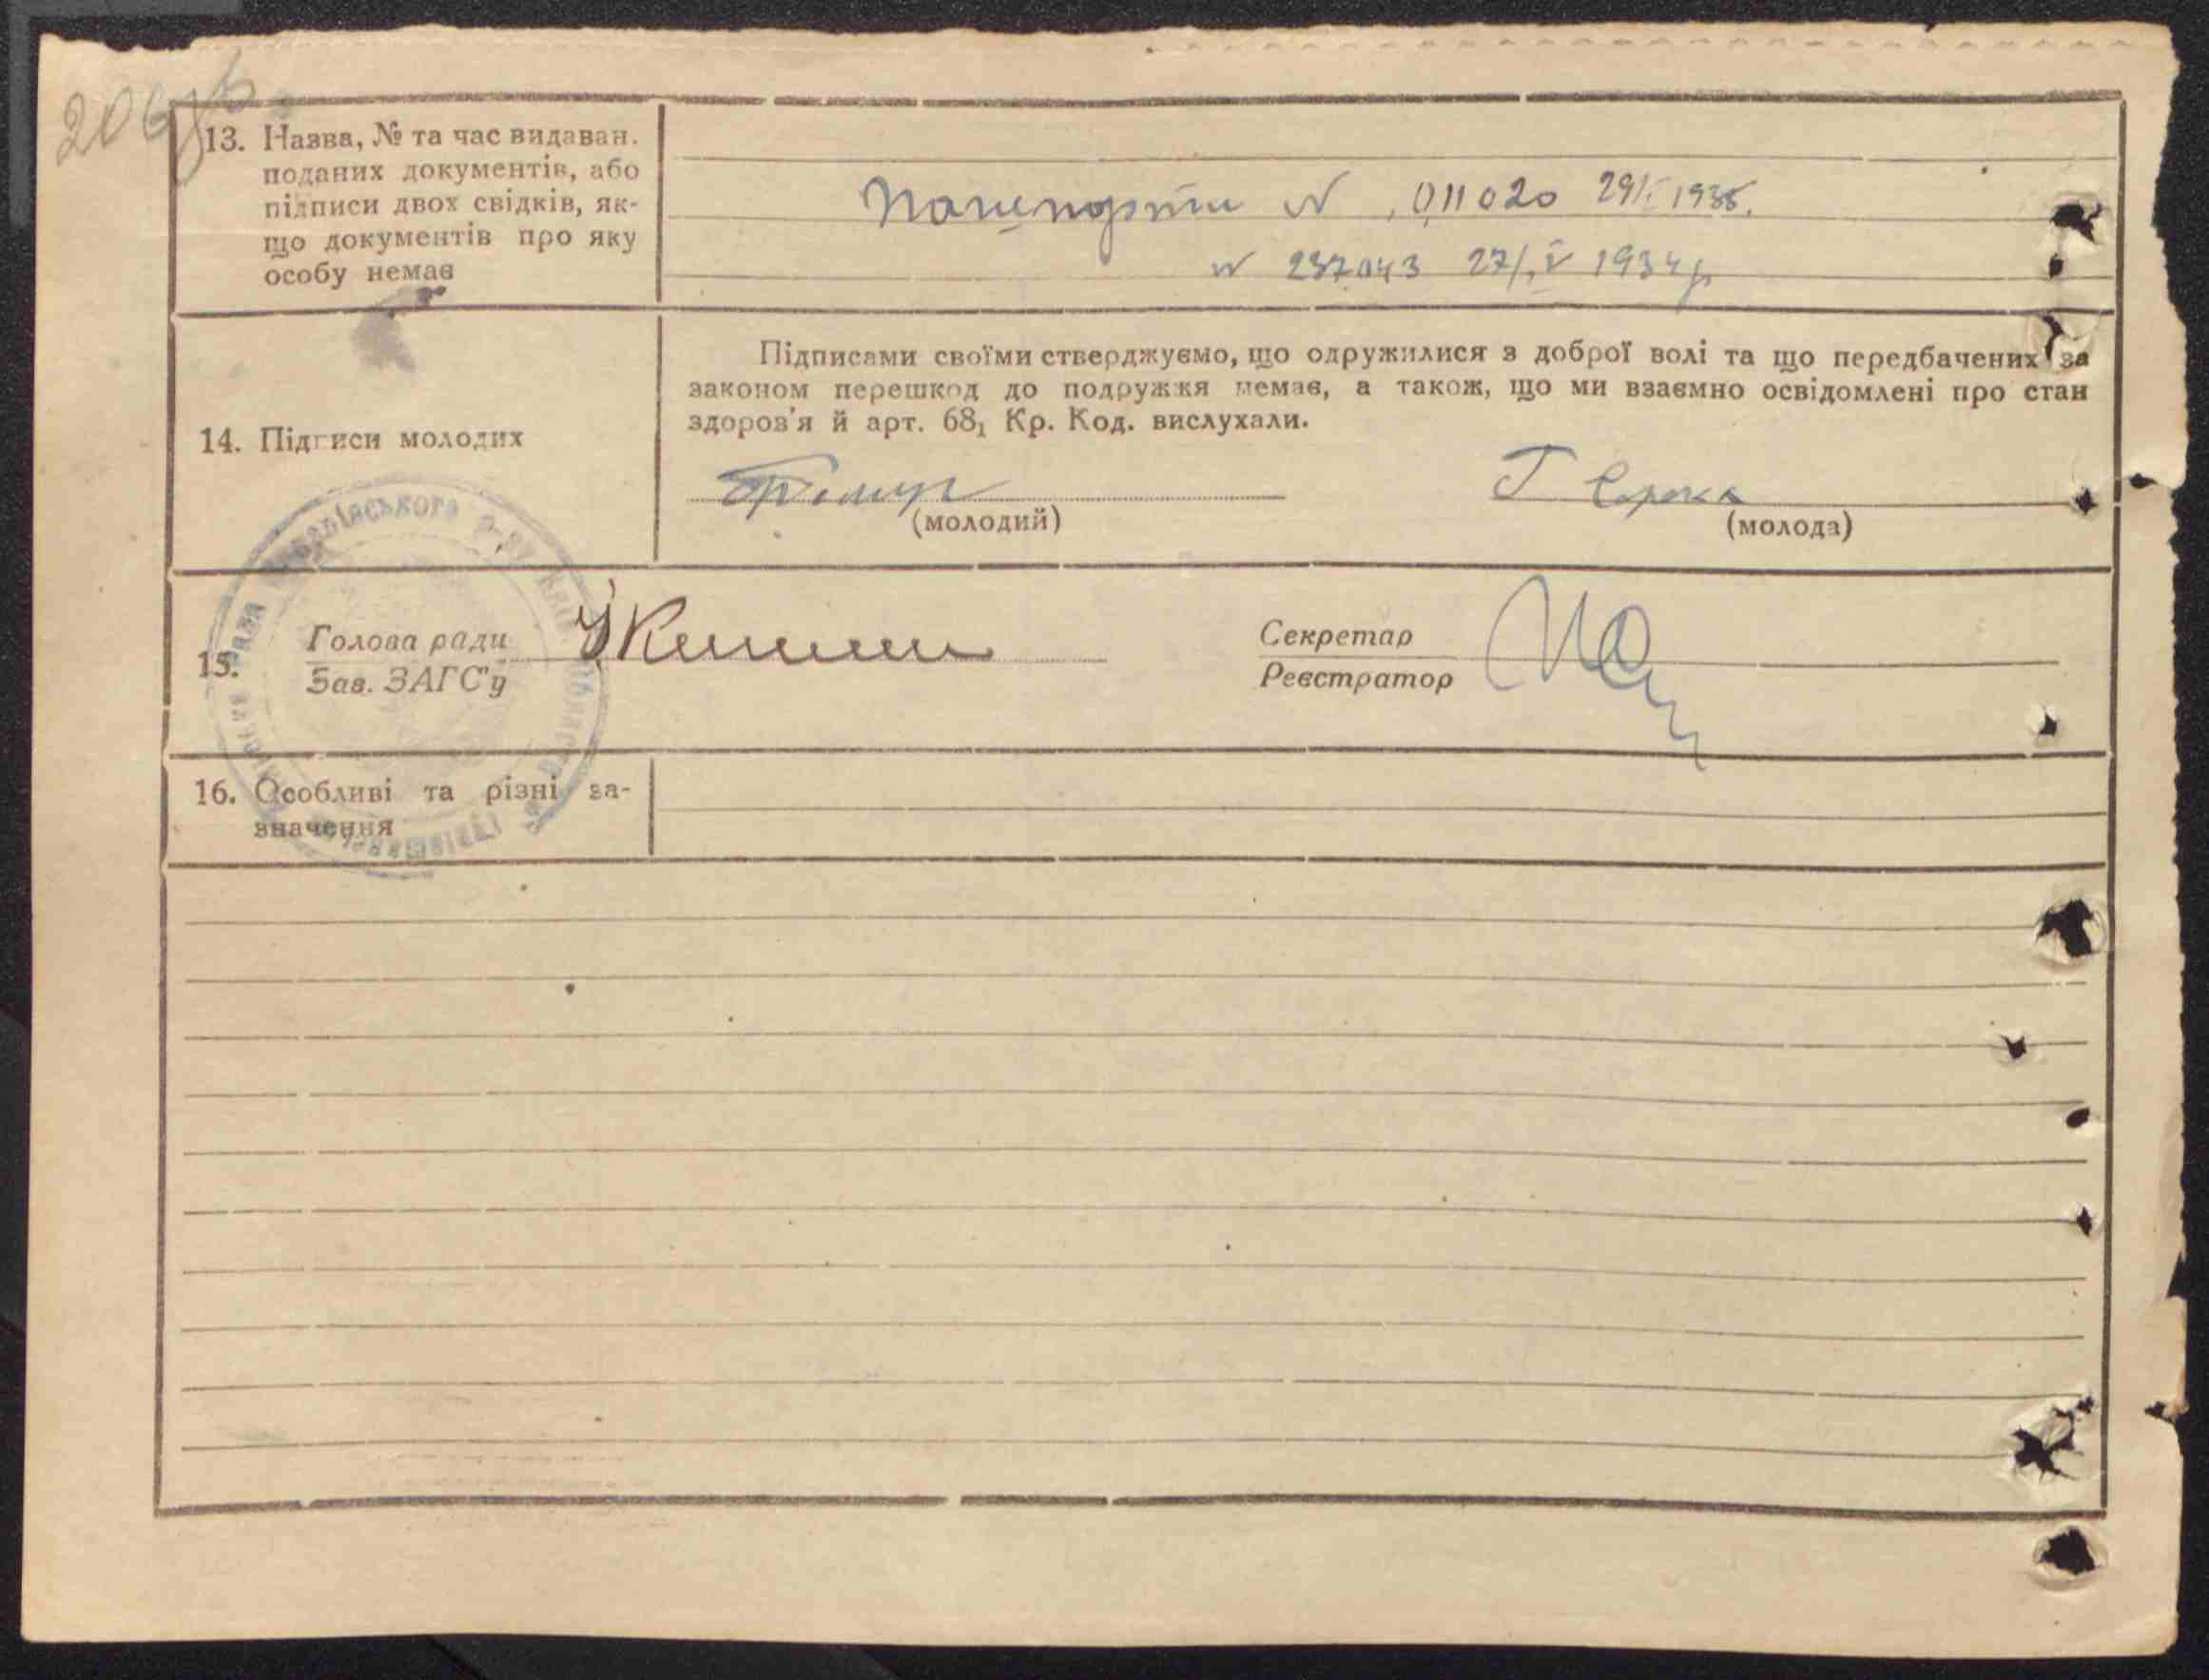 206зв
13. Назва, № та час видаван.
поданих документів, або
підписи двох свідків, як-
що документів про яку
особу немає
Пашпорти N 011020 29/I 1935.
N 237043 27/IV 1934р
14. Підписи молодих
Підписами своїми стверджуємо, що одружилися з доброї волі та що передбачених за
законом перешкод до подружжя немає, а також, що ми взаємно освідомлені про стан
здоров'я й арт. 68₁ Кр. Код. вислухали.
Г Сорока
(молодий)
(молода)
15.
Голова ради
Зав. ЗАГС'у
Секретар
Реєстратор
16. Особливі та різні за-
значення